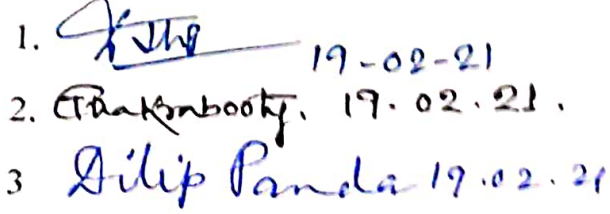 1. 19-02-21
2. Chakraborty. 19.02.21.
3 Dilip Panda 19.02.21